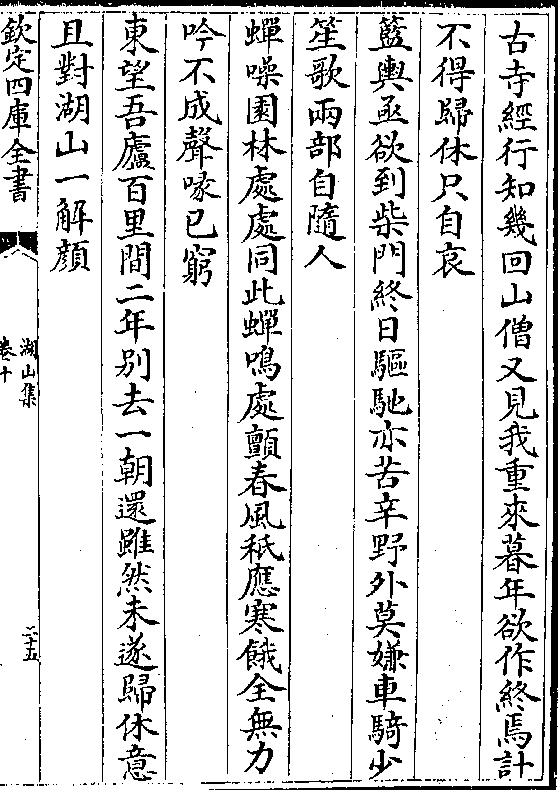 古寺經行知幾回山僧又見我重來暮年欲作終焉計
不得歸休只自哀
籃輿亟欲到柴門終日驅馳亦苦辛野外莫嫌車騎少
笙歌兩部自隨人
蟬噪園林處處同此蟬鳴處顫春風秪應寒餓全無力
吟不成聲喙已窮
東望吾廬百里間二年別去一朝還雖然未遂歸休意
且對湖山一解顔
欽定四庫全書
湖山集
卷十
二十五